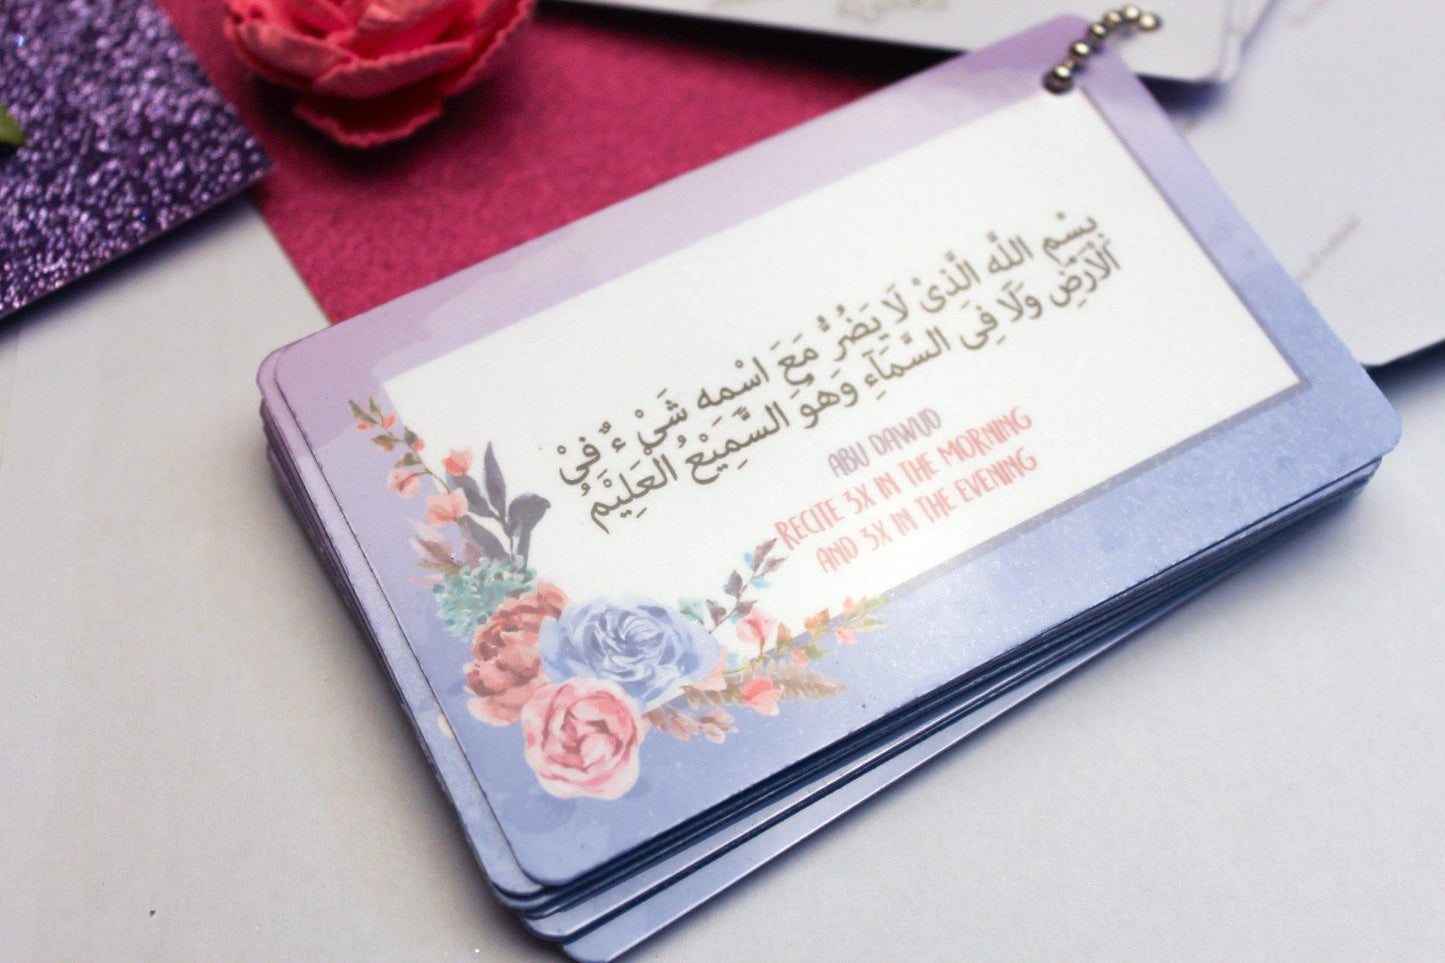 بِسْمِ اللّٰه الَّذِىْ لَا يَضُرُّ مَعَ اسْمِه شَىْ ءٌ فِىْ
الْاَرْضِ وَلَا فِى السَّمَآءِ وَهُوَ السَّمِيْعُ الْعَلِيْمُ
ABU DAWUD
RECITE 3X IN THE MORNING
AND 3X IN THE EVENING